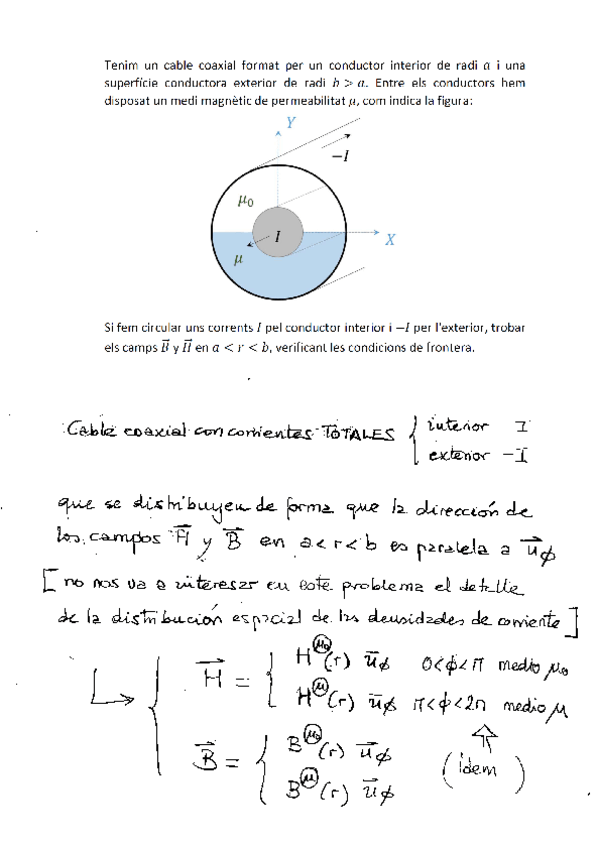 Tenim un cable coaxial format per un conductor interior de radi a i una
superfície conductora exterior de radi b > a. Entre els conductors hem
disposat un medi magnètic de permeabilitat μ, com indica la figura:
Y
−I
μ₀
I
X
μ
Si fem circular uns corrents I pel conductor interior i −I per l'exterior, trobar
els camps B⃗ y H⃗ en a < r < b, verificant les condicions de frontera.
Cable coaxial con corrientes TOTALES { interior I
exterior -I
que se distribuyen de forma que la dirección de
los campos H⃗ y B⃗ en a<r<b es paralela a u⃗ϕ
[ no nos va a interesar en este problema el detalle
de la distribución espacial de las densidades de corriente ]
H⃗ = { H^(μ₀)(r) u⃗ϕ 0<ϕ<π medio μ₀
H^(μ)(r) u⃗ϕ π<ϕ<2π medio μ
B⃗ = { B^(μ₀)(r) u⃗ϕ
B^(μ)(r) u⃗ϕ
( idem )